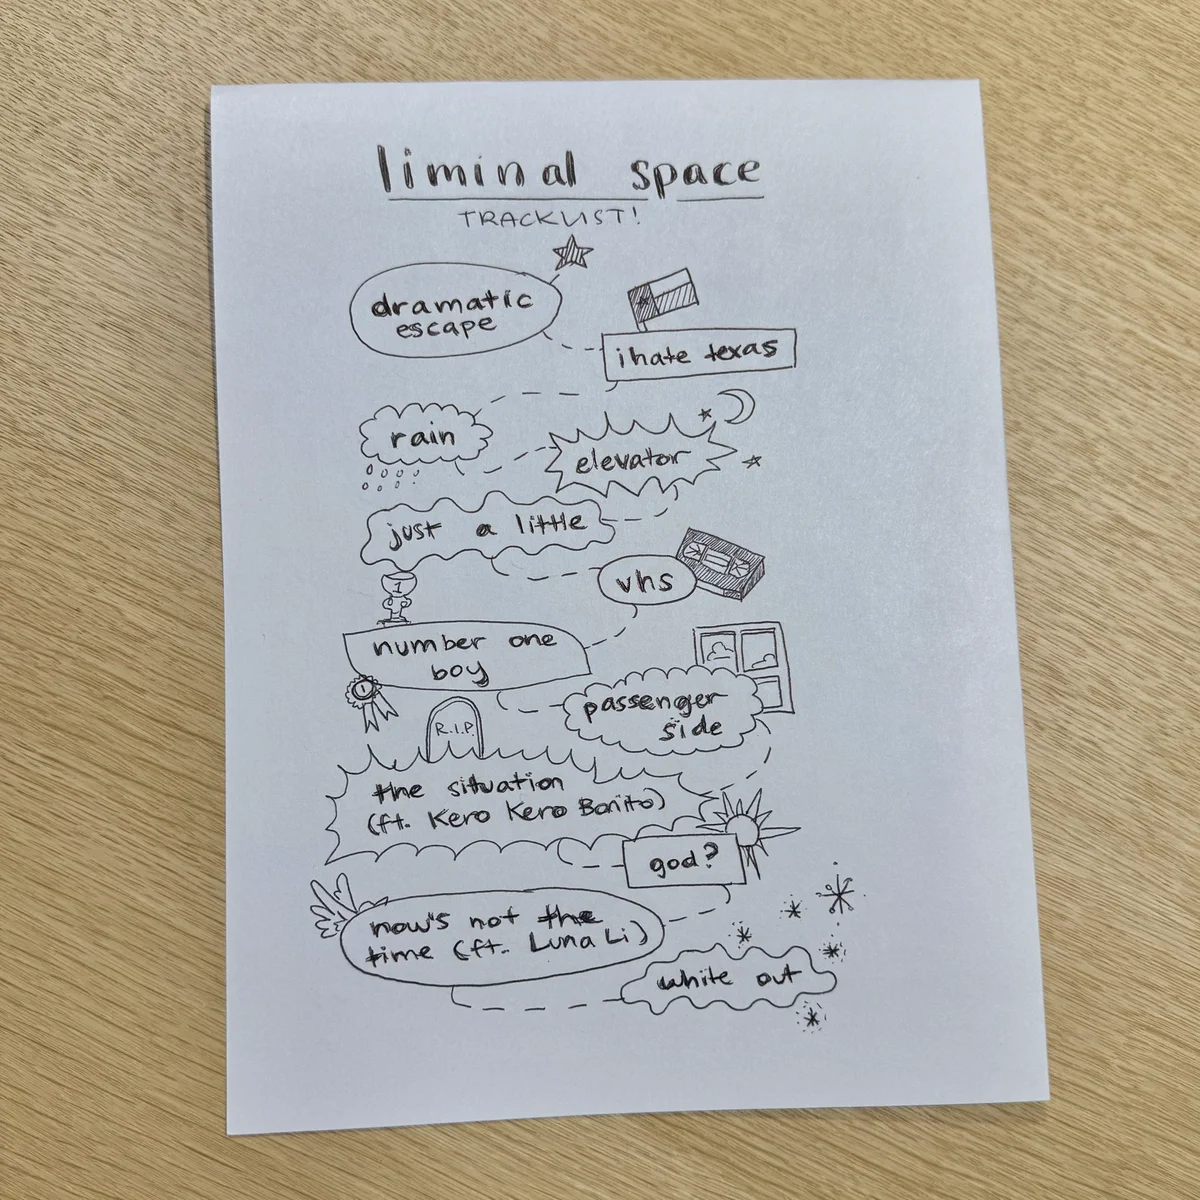 liminal space
TRACKLIST!
dramatic
escape
i hate texas
rain
elevator
just a little
vhs
1
number one
boy
1
passenger
side
R.I.P.
the situation
(ft. Kero Kero Bonito)
god?
now's not the
time (ft. Luna Li)
white out